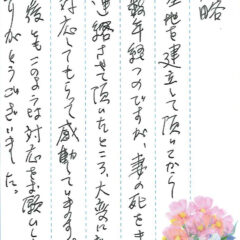 略
墓地を建立して頂いてから
数年経つのですが、妻の死をき
連絡させて頂いたところ、大変に
対応してもらて感動しています
後ともこのような対応をお願いし
りがとうございました。